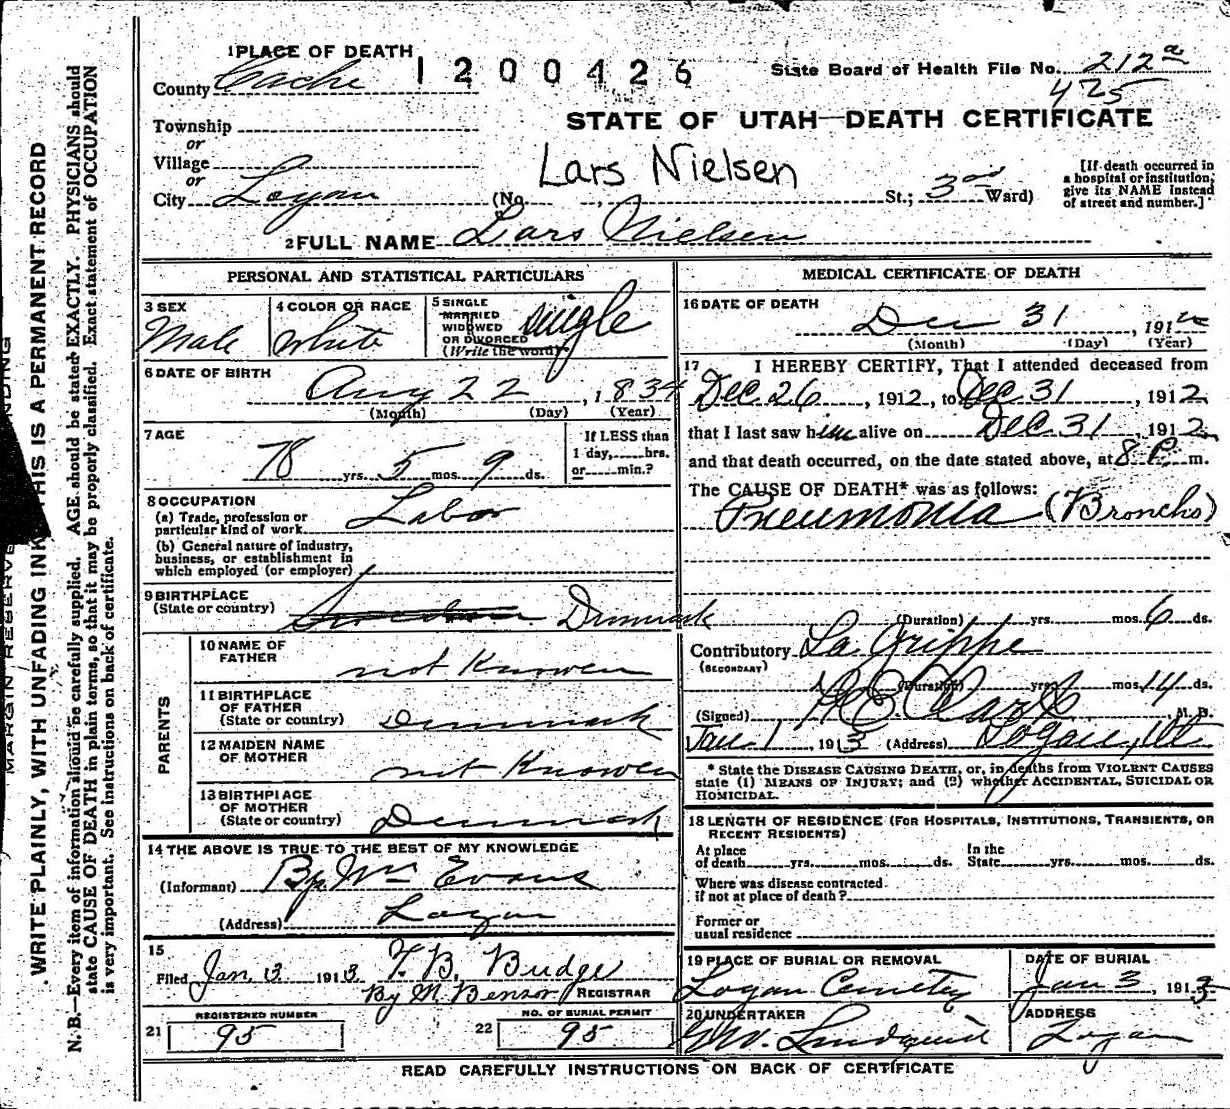 1 PLACE OF DEATH
1200426
State Board of Health File No. 212a
425
County Cache
STATE OF UTAH—DEATH CERTIFICATE
Township
or
Village
or
City Logan (No. St.; 3rd Ward)
Lars Nielsen
[If death occurred in
a hospital or institution,
give its NAME instead
of street and number.]
2 FULL NAME Lars Nielsen
PERSONAL AND STATISTICAL PARTICULARS
3 SEX
Male
4 COLOR OR RACE
white
5 SINGLE
MARRIED
WIDOWED
OR DIVORCED
(Write the word)
single
6 DATE OF BIRTH
Aug 22, 1834
(Month) (Day) (Year)
7 AGE
78 yrs. 5 mos. 9 ds.
If LESS than
1 day, hrs.
or min.?
8 OCCUPATION
(a) Trade, profession or
particular kind of work Labor
(b) General nature of industry,
business, or establishment in
which employed (or employer)
9 BIRTHPLACE
(State or country) Denmark
PARENTS
10 NAME OF
FATHER
not Knowen
11 BIRTHPLACE
OF FATHER
(State or country) Denmark
12 MAIDEN NAME
OF MOTHER
not Knowen
13 BIRTHPLACE
OF MOTHER
(State or country) Denmark
14 THE ABOVE IS TRUE TO THE BEST OF MY KNOWLEDGE
(Informant) Evans
(Address) Logan
15
Filed Jan. 3 1913. F. B. Budge
By M Benson REGISTRAR
REGISTERED NUMBER
21 95
NO. OF BURIAL PERMIT
22 95
MEDICAL CERTIFICATE OF DEATH
16 DATE OF DEATH
Dec 31, 1912
(Month) (Day) (Year)
17 I HEREBY CERTIFY, That I attended deceased from
Dec. 26, 1912, to Dec 31, 1912,
that I last saw him alive on Dec 31, 1912,
and that death occurred, on the date stated above, at 8 P. m.
The CAUSE OF DEATH* was as follows:
Pneumonia (Broncho)
(Duration) yrs. mos. 6 ds.
Contributory La Grippe
(SECONDARY)
(Duration) yrs. mos. 14 ds.
(Signed) M. D.
Jan. 1, 1913 (Address) Logan, Ut
* State the DISEASE CAUSING DEATH, or, in deaths from VIOLENT CAUSES
state (1) MEANS OF INJURY; and (2) whether ACCIDENTAL, SUICIDAL OR
HOMICIDAL.
18 LENGTH OF RESIDENCE (FOR HOSPITALS, INSTITUTIONS, TRANSIENTS, OR
RECENT RESIDENTS)
At place
of death yrs. mos. ds.
In the
State yrs. mos. ds.
Where was disease contracted.
if not at place of death?
Former or
usual residence
19 PLACE OF BURIAL OR REMOVAL
Logan Cemetery
DATE OF BURIAL
Jan 3, 1913
20 UNDERTAKER
Lindquist
ADDRESS
Logan
READ CAREFULLY INSTRUCTIONS ON BACK OF CERTIFICATE
MARGIN RESERVED BINDING
WRITE PLAINLY, WITH UNFADING INK THIS IS A PERMANENT RECORD
N. B.—Every item of information should be carefully supplied. AGE should be stated EXACTLY. PHYSICIANS should
state CAUSE OF DEATH in plain terms, so that it may be properly classified. Exact statement of OCCUPATION
is very important. See instructions on back of certificate.